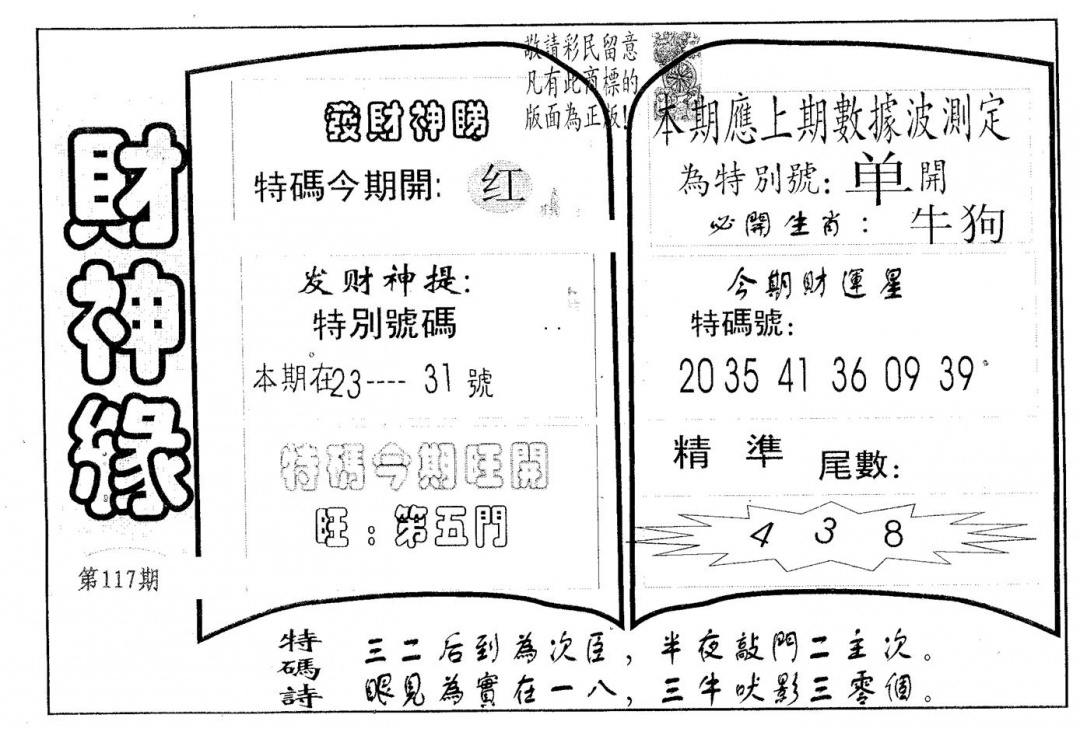 財神緣
第117期
敬請彩民留意
凡有此商標的
版面為正版!
發財神睇
特碼今期開: 红
发财神提:
特別號碼
本期在23---- 31號
特碼今期旺開
旺:第五門
本期應上期數據波測定
為特別號: 单開
必開生肖: 牛狗
今期財運星
特碼號:
20 35 41 36 09 39
精 準 尾數:
4 3 8
特碼詩
三二后到為次臣,半夜敲門二主次。
眼見為實在一八,三牛吠影三零個。